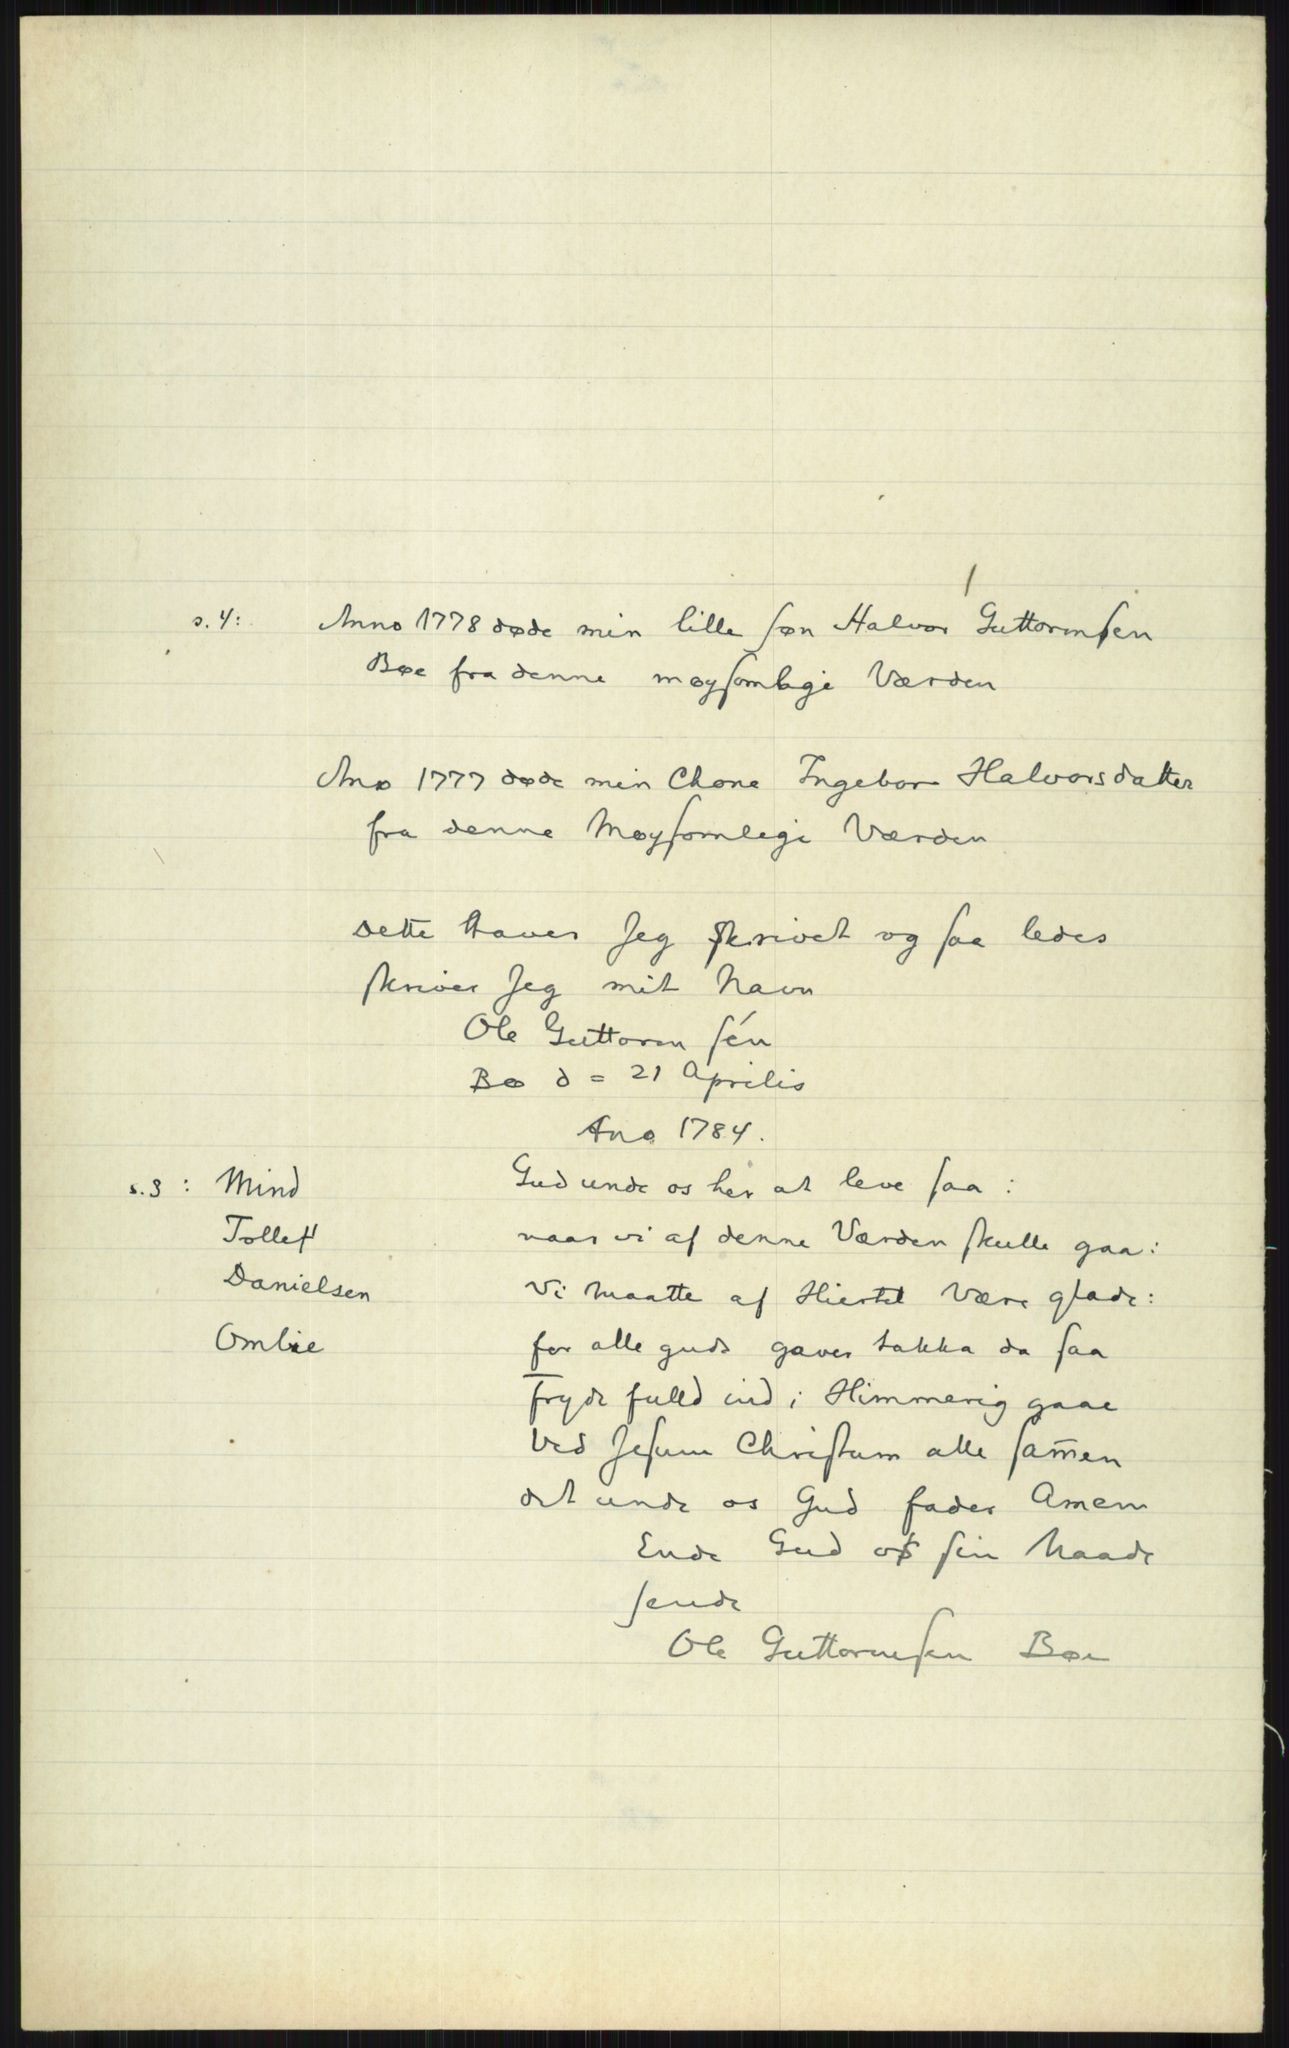 s. 4: Anno 1778 døde min lille søn Halvor Guttormsen
Bøe fra denne møysomlige Værden
Ano 1777 døde min Chone Ingebor Halvorsdatter
fra denne Møysomlegi Værden
Dette haver Jeg skrivet og saa ledes
skriver Jeg mit Navn
Ole Guttorm sén
Bø d = 21 Aprilis
Ano 1784.
s. 3: Mind
Tollef
Danielsen
Omlie
Gud unde os her at leve saa :
naar vi af denne Værden skulle gaa :
Vi maatte af Hiertet Være glade :
for alle guds gaver takka da saa
Fryde fulld ind i Himmerig gaae
Ved Jesum Christum alle sam̄en
det unde os Gud fader Amen
Ende Gud os sin Naade
sende
Ole Guttormsen Bøe